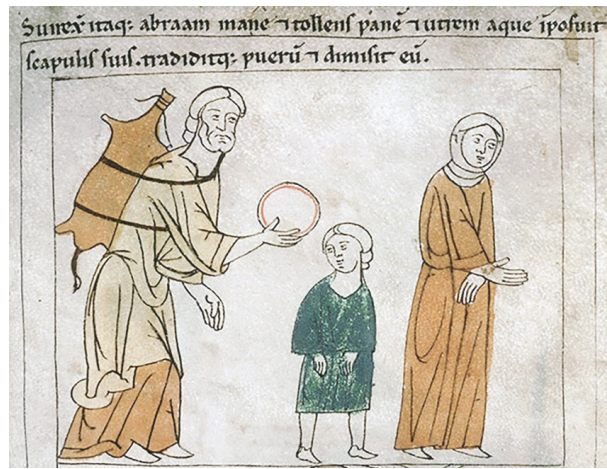 Surrex̄ itaq; abraam mane ⁊ tollens pane̅ ⁊ utrem aque ip̄osuit
scapulis suis. tradiditq; pueru̅ ⁊ dimisit eu̅.